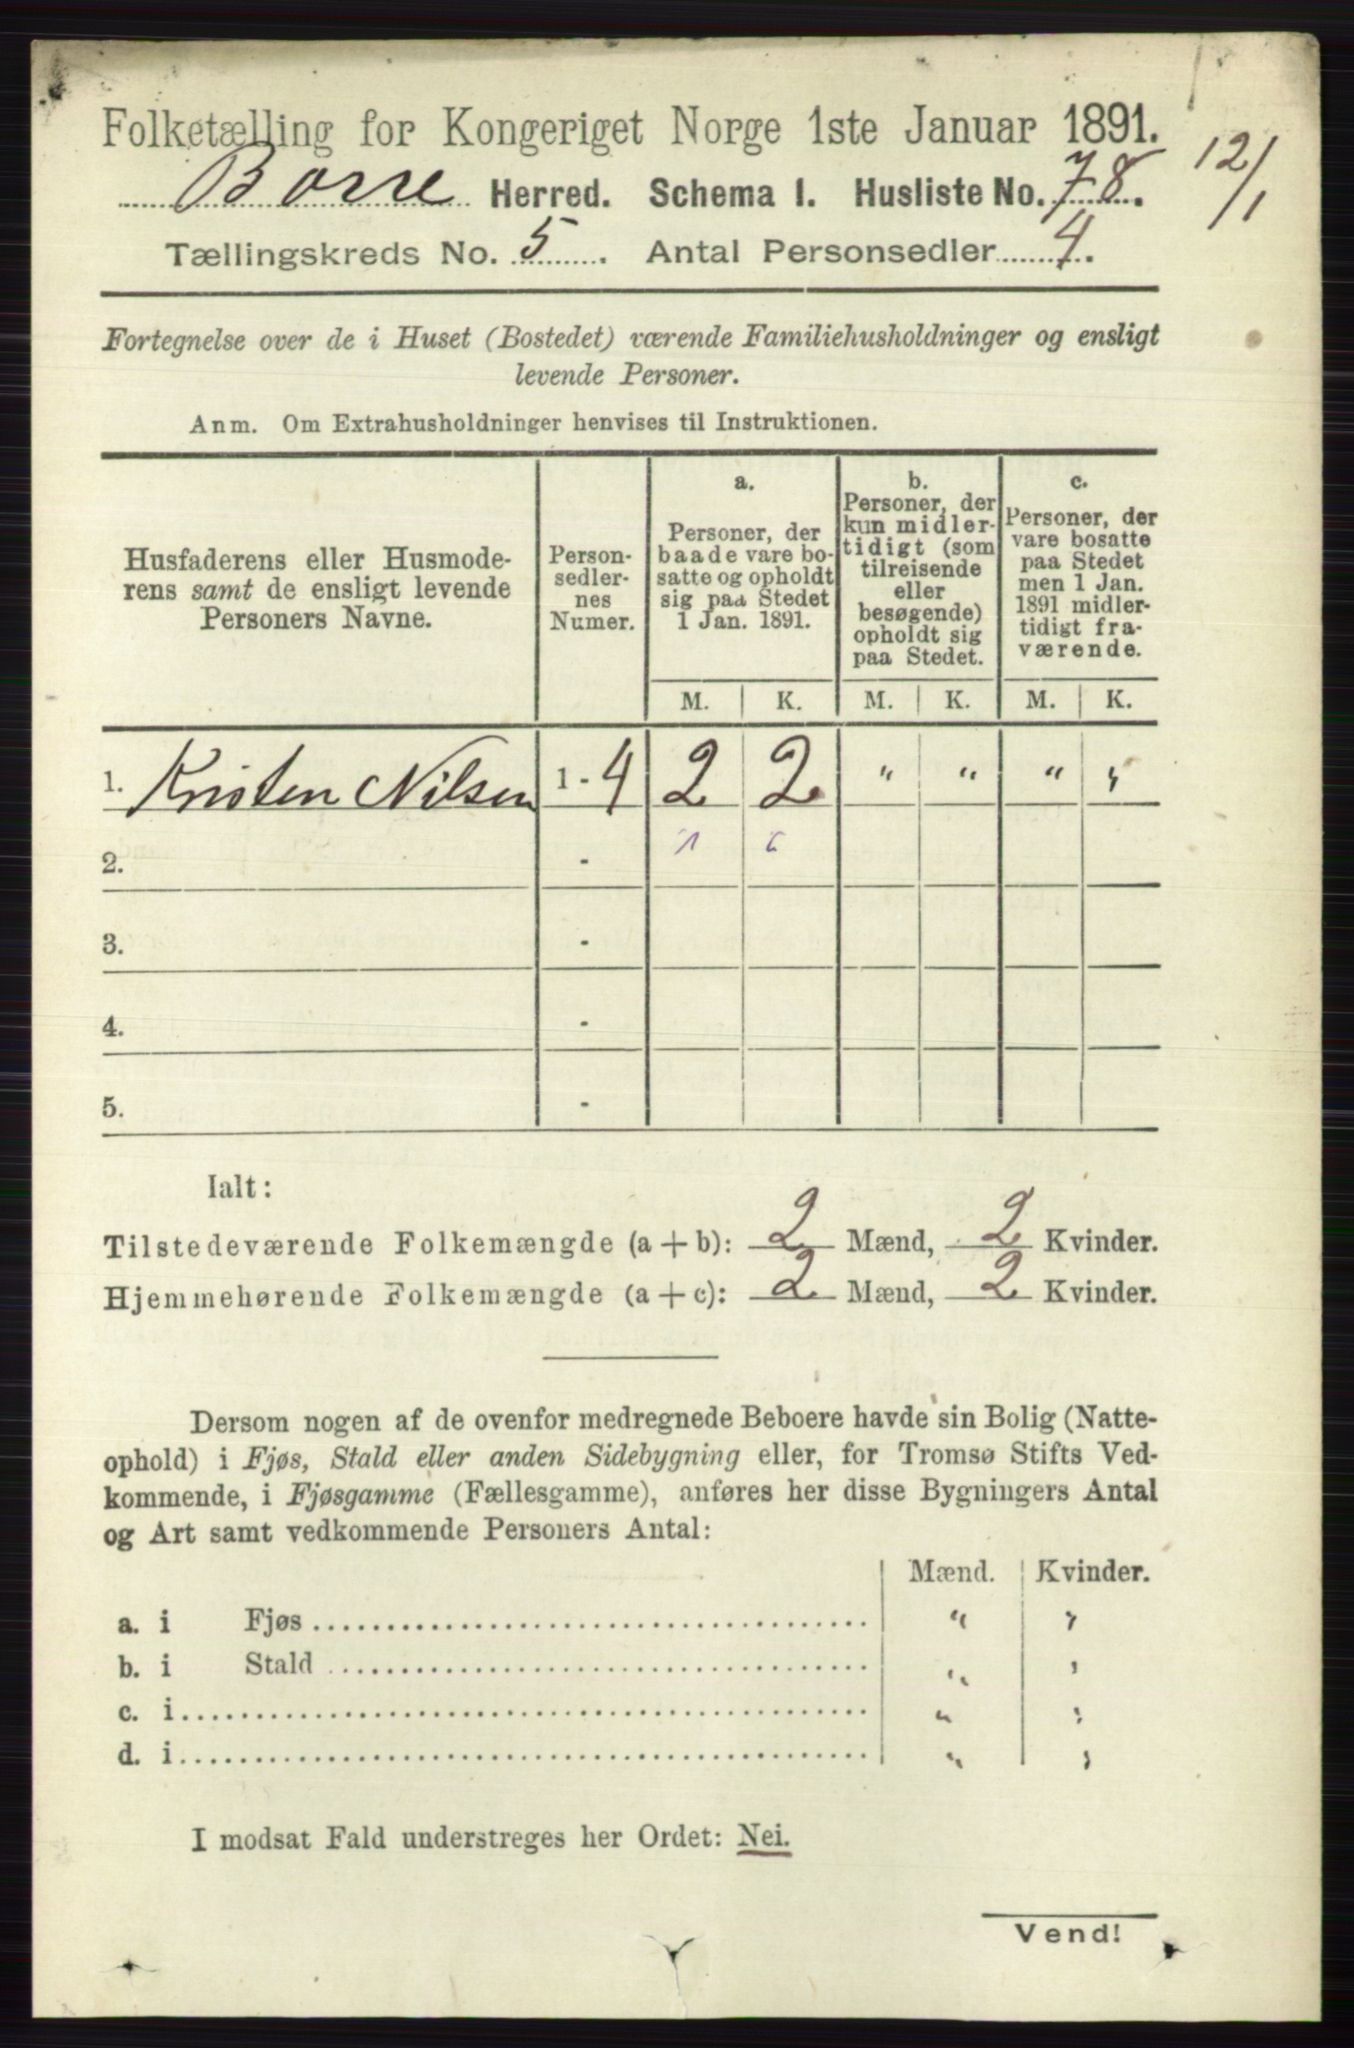 Folketælling for Kongeriget Norge 1ste Januar 1891.
Borre Herred. Schema I. Husliste No. 78.
12/1
Tællingskreds No. 5. Antal Personsedler 4.
Fortegnelse over de i Huset (Bostedet) værende Familiehusholdninger og ensligt
levende Personer.
Anm. Om Extrahusholdninger henvises til Instruktionen.
Husfaderens eller Husmode-
rens samt de ensligt levende
Personers Navne.
Person-
sedler-
nes
Numer.
a.
Personer, der
baade vare bo-
satte og opholdt
sig paa Stedet
1 Jan. 1891.
b.
Personer, der
kun midler-
tidigt (som
tilreisende
eller
besøgende)
opholdt sig
paa Stedet.
c.
Personer, der
vare bosatte
paa Stedet
men 1 Jan.
1891 midler-
tidigt fra-
værende.
M. K. M. K. M. K.
1. Kristen Nilsen 1 - 4 2 2 " " " "
2. -
3. -
4. -
5. -
Ialt:
Tilstedeværende Folkemængde (a + b): 2 Mænd, 2 Kvinder.
Hjemmehørende Folkemængde (a + c): 2 Mænd, 2 Kvinder.
Dersom nogen af de ovenfor medregnede Beboere havde sin Bolig (Natte-
ophold) i Fjøs, Stald eller anden Sidebygning eller, for Tromsø Stifts Ved-
kommende, i Fjøsgamme (Fællesgamme), anføres her disse Bygningers Antal
og Art samt vedkommende Personers Antal:
Mænd. Kvinder.
a. i Fjøs " "
b. i Stald " "
c. i " "
d. i " "
I modsat Fald understreges her Ordet: Nei.
Vend!